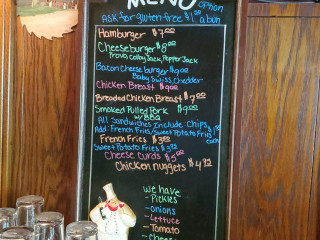 MENU
option
Ask for gluten-free $1.50 a bun
Hamburger $7.00
Cheeseburger $8.00
Provo, Colby Jack, Pepper Jack
Bacon Cheeseburger $9.00
Baby Swiss, Chedder
Chicken Breast $9.00
Breaded Chicken Breast $9.00
Smoked Pulled Pork $9.00
w/BBQ
All Sandwiches Include: Chips
Add: French Fries/Sweet Potato Fries
French Fries $3.00
Sweet Potato Fries
Cheese Curds $5.00
Chicken nuggets
We have
- Pickles
- Onions
- Lettuce
- Tomato
- Cheese